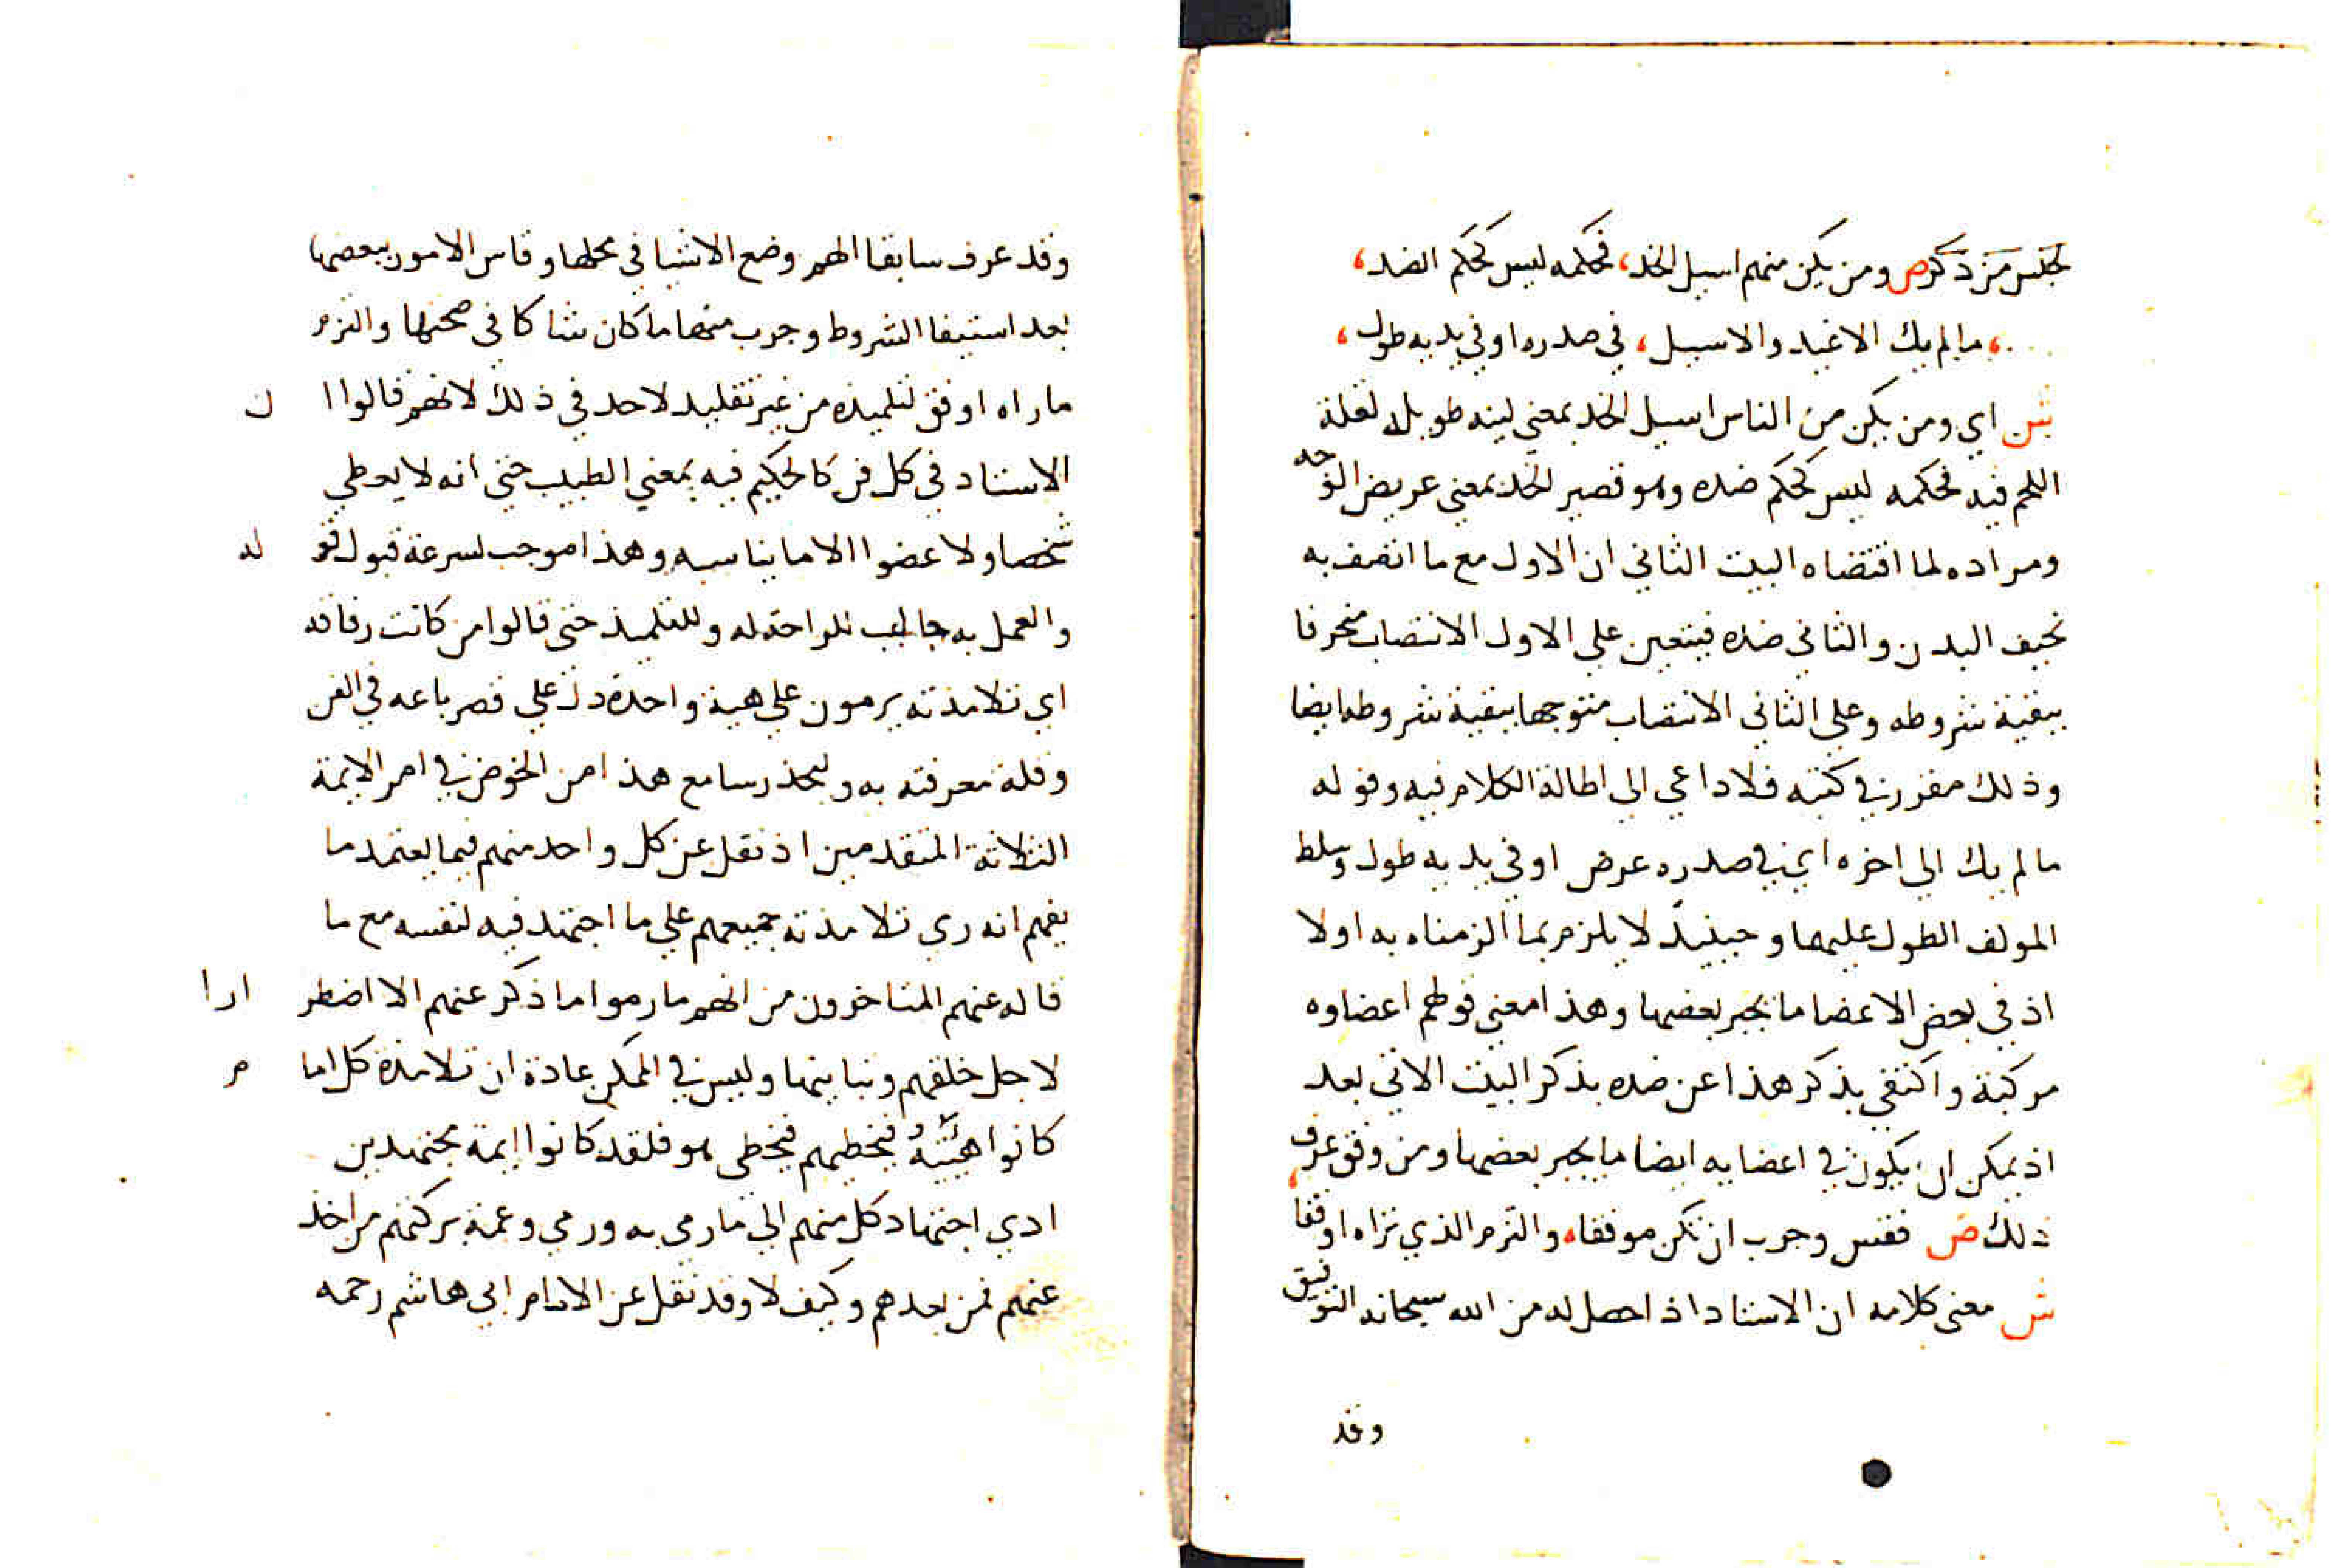 لجنس من ذكر ص ومن يكن منهم اسيل الخد، فحكمه ليس كحكم الضد،
، مالم يك الاغيد والاسيل، في صدره اوفي يديه طول،
ش اي ومن يكن من الناس اسيل الخد بمعني لينه طويله لقلة
اللحم فيه فحكمه ليس كحكم ضده وهو قصير الخد بمعني عريض الوجه
ومراده لما اقتضاه البيت الثاني ان الاول مع ما اتصف به
نحيف البدن والثاني ضده فيتعين علي الاول الانتصاب منحرفا
ببقية شروطه وعلي الثاني الانتصاب متوجها ببقية شروطه ايضا
وذلك مقرر في كتبه فلا داعي الي اطالة الكلام فيه وقوله
مالم يك الي اخره اي في صدره عرض اوفي يديه طول وسلط
المولف الطول عليهما وحينيذ لا يلزم بما الزمناه به اولا
اذ في بعض الاعضا ما يجبر بعضها وهذا معني قولهم اعضاوه
مركبة واكتفي بذكر هذا عن ضده بذكر البيت الاتي بعد
اذ يمكن ان يكون في اعضايه ايضا ما يجبر بعضها ومن وفق عرف
ذلك ص فقس وجرب ان تكن موفقا، والتزم الذي تراه اوفقا،
ش معني كلامه ان الاستاد اذا حصل له من الله سبحانه التوفيق
وقد
وقد عرف سابقا الهم وضع الاشيا في محلها وقاس الامور ببعضها
بعد استيفا الشروط وجرب منها ما كان شاكا في صحتها والتزم
ماراه اوفق لتلميذه من غير تقليد لاحد في ذلك لانهم قالوا ان
الاستاد في كل فن كالحكيم فيه بمعني الطبيب حتي انه لا يعطي
شخصا ولا عضوا الا ما يناسبه وهذا موجب لسرعة قبول قوله
والعمل به جالب للراحة له وللتلميذ حتي قالوا من كانت رفاقه
اي تلامذته يرمون علي هية واحدة دل علي قصر باعه في الفن
وقلة معرفته به وليحذر سامع هذا من الخوض في امر الايمة
الثلاثة المتقدمين اذ نقل عن كل واحد منهم فيما يعتمد ما
يفهم انه ربي تلامذته جميعهم علي ما اجتهد فيه لنفسه مع ما
قاله عنهم المتاخرون من انهم ما رموا ما ذكر عنهم الا اضطرارا
لاجل خلقهم وتباينها وليس في الممكن عادة ان تلامذة كل امام
كانوا هيئته فيخطيهم فيخطي هو فلقد كانوا ايمة مجتهدين
ادي اجتهاد كل منهم الي مارمي به ورمي وعمة بركتهم من اخذ
عنهم فمن بعدهم وكيف لا وقد نقل عن الامام ابي هاشم رحمه